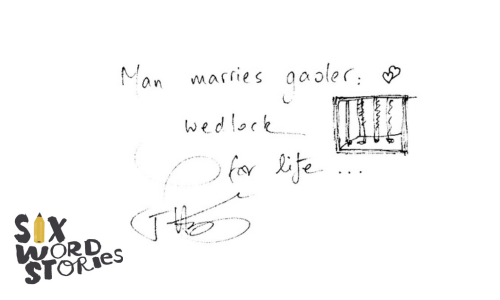 Man marries gaoler:
wedlock
for life ...
SIX
WORD
STORIES